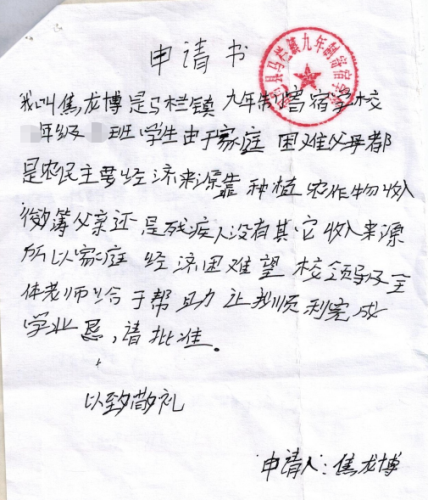 申请书
县马栏镇九年制寄宿学校
我叫焦龙博是马栏镇九年制寄宿学校
年级 班学生由于家庭困难父母都
是农民主要经济来源靠种植农作物收入
微薄父亲还是残疾人没有其它收入来源
所以家庭经济困难望校领导及全
体老师给于帮助让我顺利完成
学业恳请批准。
以致敬礼
申请人:焦龙博